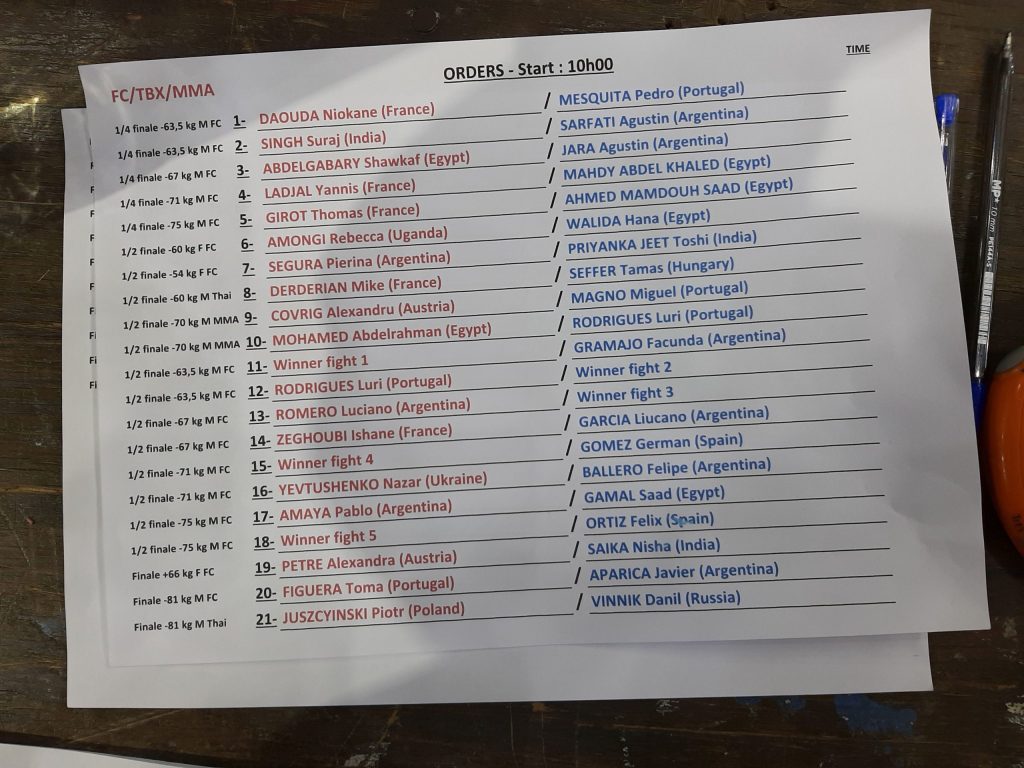 ORDERS - Start : 10h00
TIME
FC/TBX/MMA
1/4 finale -63,5 kg M FC 1- DAOUDA Niokane (France) / MESQUITA Pedro (Portugal)
1/4 finale -63,5 kg M FC 2- SINGH Suraj (India) / SARFATI Agustin (Argentina)
1/4 finale -67 kg M FC 3- ABDELGABARY Shawkaf (Egypt) / JARA Agustin (Argentina)
1/4 finale -71 kg M FC 4- LADJAL Yannis (France) / MAHDY ABDEL KHALED (Egypt)
1/4 finale -75 kg M FC 5- GIROT Thomas (France) / AHMED MAMDOUH SAAD (Egypt)
1/2 finale -60 kg F FC 6- AMONGI Rebecca (Uganda) / WALIDA Hana (Egypt)
1/2 finale -54 kg F FC 7- SEGURA Pierina (Argentina) / PRIYANKA JEET Toshi (India)
1/2 finale -60 kg M Thai 8- DERDERIAN Mike (France) / SEFFER Tamas (Hungary)
1/2 finale -70 kg M MMA 9- COVRIG Alexandru (Austria) / MAGNO Miguel (Portugal)
1/2 finale -70 kg M MMA 10- MOHAMED Abdelrahman (Egypt) / RODRIGUES Luri (Portugal)
1/2 finale -63,5 kg M FC 11- Winner fight 1 / GRAMAJO Facunda (Argentina)
1/2 finale -63,5 kg M FC 12- RODRIGUES Luri (Portugal) / Winner fight 2
1/2 finale -67 kg M FC 13- ROMERO Luciano (Argentina) / Winner fight 3
1/2 finale -67 kg M FC 14- ZEGHOUBI Ishane (France) / GARCIA Liucano (Argentina)
1/2 finale -71 kg M FC 15- Winner fight 4 / GOMEZ German (Spain)
1/2 finale -71 kg M FC 16- YEVTUSHENKO Nazar (Ukraine) / BALLERO Felipe (Argentina)
1/2 finale -75 kg M FC 17- AMAYA Pablo (Argentina) / GAMAL Saad (Egypt)
1/2 finale -75 kg M FC 18- Winner fight 5 / ORTIZ Felix (Spain)
Finale +66 kg F FC 19- PETRE Alexandra (Austria) / SAIKA Nisha (India)
Finale -81 kg M FC 20- FIGUERA Toma (Portugal) / APARICA Javier (Argentina)
Finale -81 kg M Thai 21- JUSZCYINSKI Piotr (Poland) / VINNIK Danil (Russia)